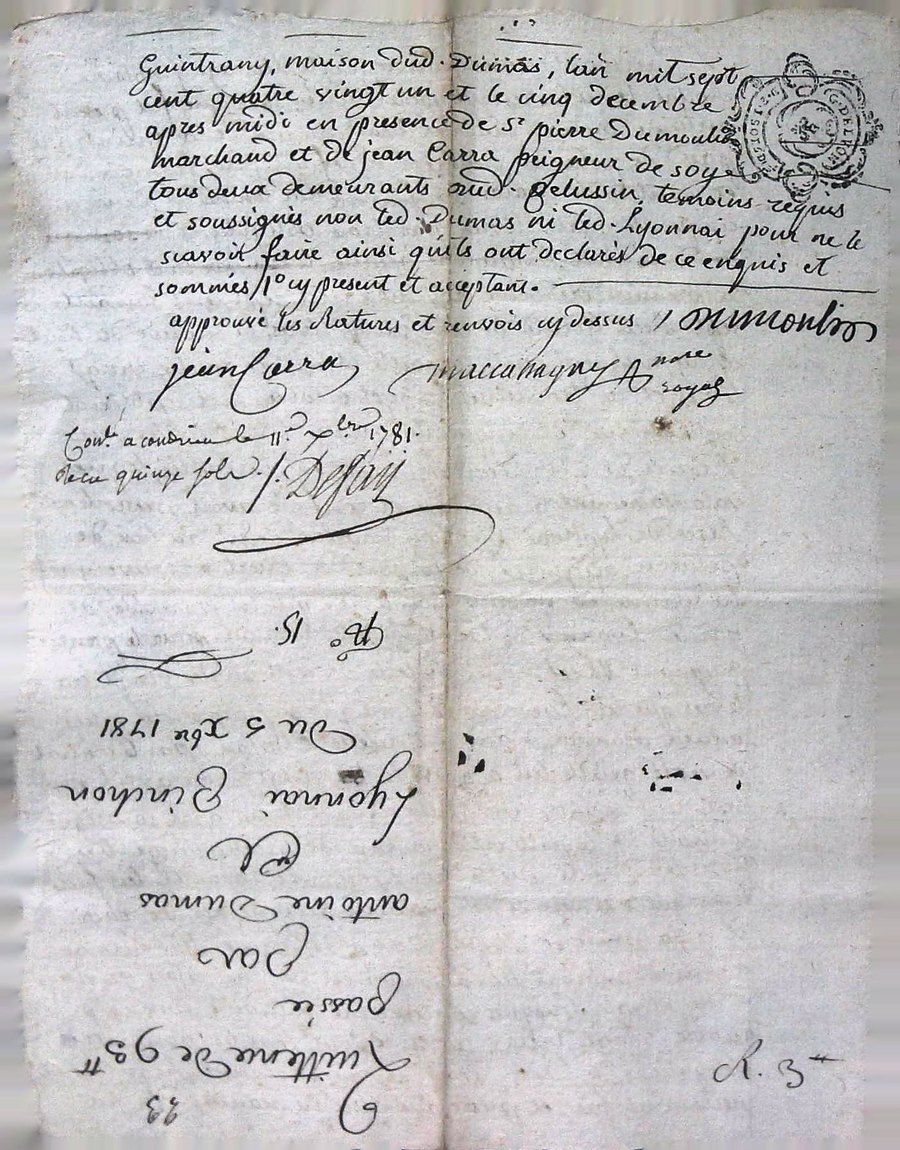 Guintrany, maison dud. Dumas, lan mil sept
cent quatre vingt un et le cinq decembre
apres midi en presence de Sr pierre Dumoulin
marchand et de jean Carra peigneur de soye
tous deux demeurants aud. pelussin, temoins requis
et soussignés non led. Dumas ni led. Lyonnai pour ne le
scavoir faire ainsi quils ont declarés de ce enquis et
sommés / cy present et acceptant.
approuvé les Ratures et renvois cy dessus / Dumoulin
jean Carra note
royal
Conlé a condrieu le 11e Xbre 1781.
Recu quinze sols ./.
No 15.
Du 5 Xbre 1781
Lyonnai
et
antoine Dumas
par
passée
Quittence de 93tt
23
R. 3tt